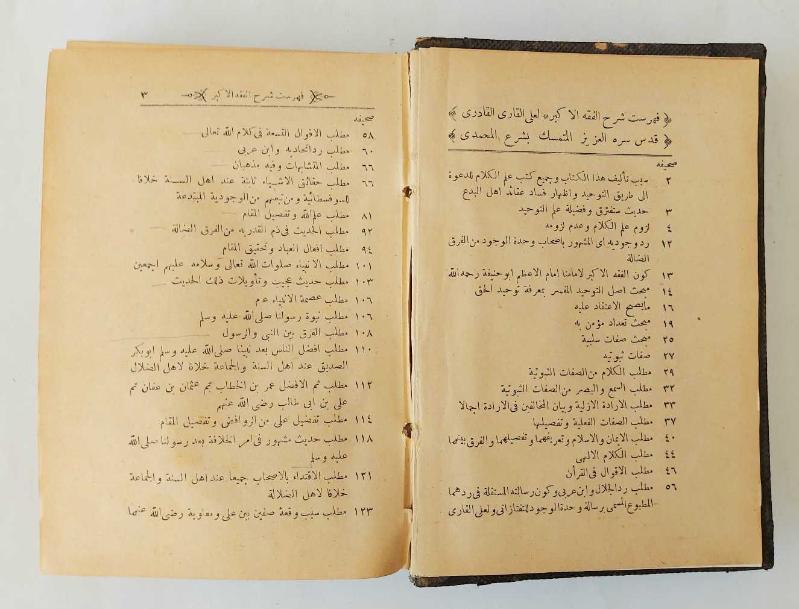 ﴿ فهرست شرح الفقه الاكبر لعلى القارى القادرى ﴾
﴿ قدس سره العزيز المتمسك بشرع المحمدى ﴾
صحيفه
٢ سبب تأليف هذا الكتاب وجميع كتب علم الكلام للدعوة
الى طريق التوحيد واظهار فساد عقائد اهل البدع
٣ حديث ستفترق وفضيلة علم التوحيد
٤ لزوم علم الكلام وعدم لزومه
١٢ رد وجوديه اى المشهور باصحاب وحدة الوجود من الفرق
الضالة
١٣ كون الفقه الاكبر لامامنا امام الاعظم ابوحنيفة رحمه الله
١٤ مبحث اصل التوحيد المفسر بمعرفة توحيد الحق
١٦ مايصح الاعتقاد عليه
١٩ مبحث تعداد مؤمن به
٢٥ مبحث صفات سلبية
٢٧ صفات ثبوتيه
٢٩ مطلب الكلام من الصفات الثبوتية
٣٢ مطلب السمع والبصر من الصفات الثبوتية
٣٣ مطلب الارادة الازلية وبيان المخالفين فى الارادة اجمالا
٣٧ مطلب الصفات الفعلية وتفصيلها
٤٠ مطلب الايمان والاسلام وتعريفهما وتفصيلهما والفرق بينهما
٤٤ مطلب الكلام الالهى
٤٦ مطلب الاقوال فى القرأن
٥٦ مطلب رد الجلال وابن عربى وكون رسالته المستقلة فى ردهما
المطبوع المسمى برسالة وحدة الوجود للتفتازانى ولعلى القارى
﴿ فهرست شرح الفقه الاكبر ﴾ ٣
صحيفه
٥٨ مطلب الاقوال التسعة فى كلام الله تعالى
٦٠ مطلب رد اتحاديه وابن عربى
٦٦ مطلب المتشابهات وفيه مذهبان
٦٦ مطلب حقائق الاشياء ثابتة عند اهل السنة خلافا
للسوفسطائية ومن تبعهم من الوجودية المبتدعة
٨١ مطلب علم الله وتفصيل المقام
٩٢ مطلب الحديث فى ذم القدريه من الفرق الضالة
٩٤ مطلب افعال العباد وتحقيق المقام
١٠١ مطلب الانبياء صلوات الله تعالى وسلامه عليهم اجمعين
١٠٣ مطلب حديث عجيب وتأويلات ذلك الحديث
١٠٦ مطلب عصمة الانبياء عم
١٠٦ مطلب نبوة رسولنا صلى الله عليه وسلم
١٠٨ مطلب الفرق بين النبى والرسول
١١٠ مطلب افضل الناس بعد نبينا صلى الله عليه وسلم ابوبكر
الصديق عند اهل السنة والجماعة خلافا لاهل الضلال
١١٢ مطلب ثم الافضل عمر بن الخطاب ثم عثمان بن عفان ثم
على بن ابى طالب رضى الله عنهم
١١٤ مطلب تفضيل على من الروافض وتفصيل المقام
١١٨ مطلب حديث مشهور فى امر الخلافة بعد رسولنا صلى الله
عليه وسلم
١٢١ مطلب الاقتداء بالاصحاب جميعا عند اهل السنة والجماعة
خلافا لاهل الضلالة
١٢٣ مطلب سبب وقعة صفين بين على ومعاوية رضى الله عنهما